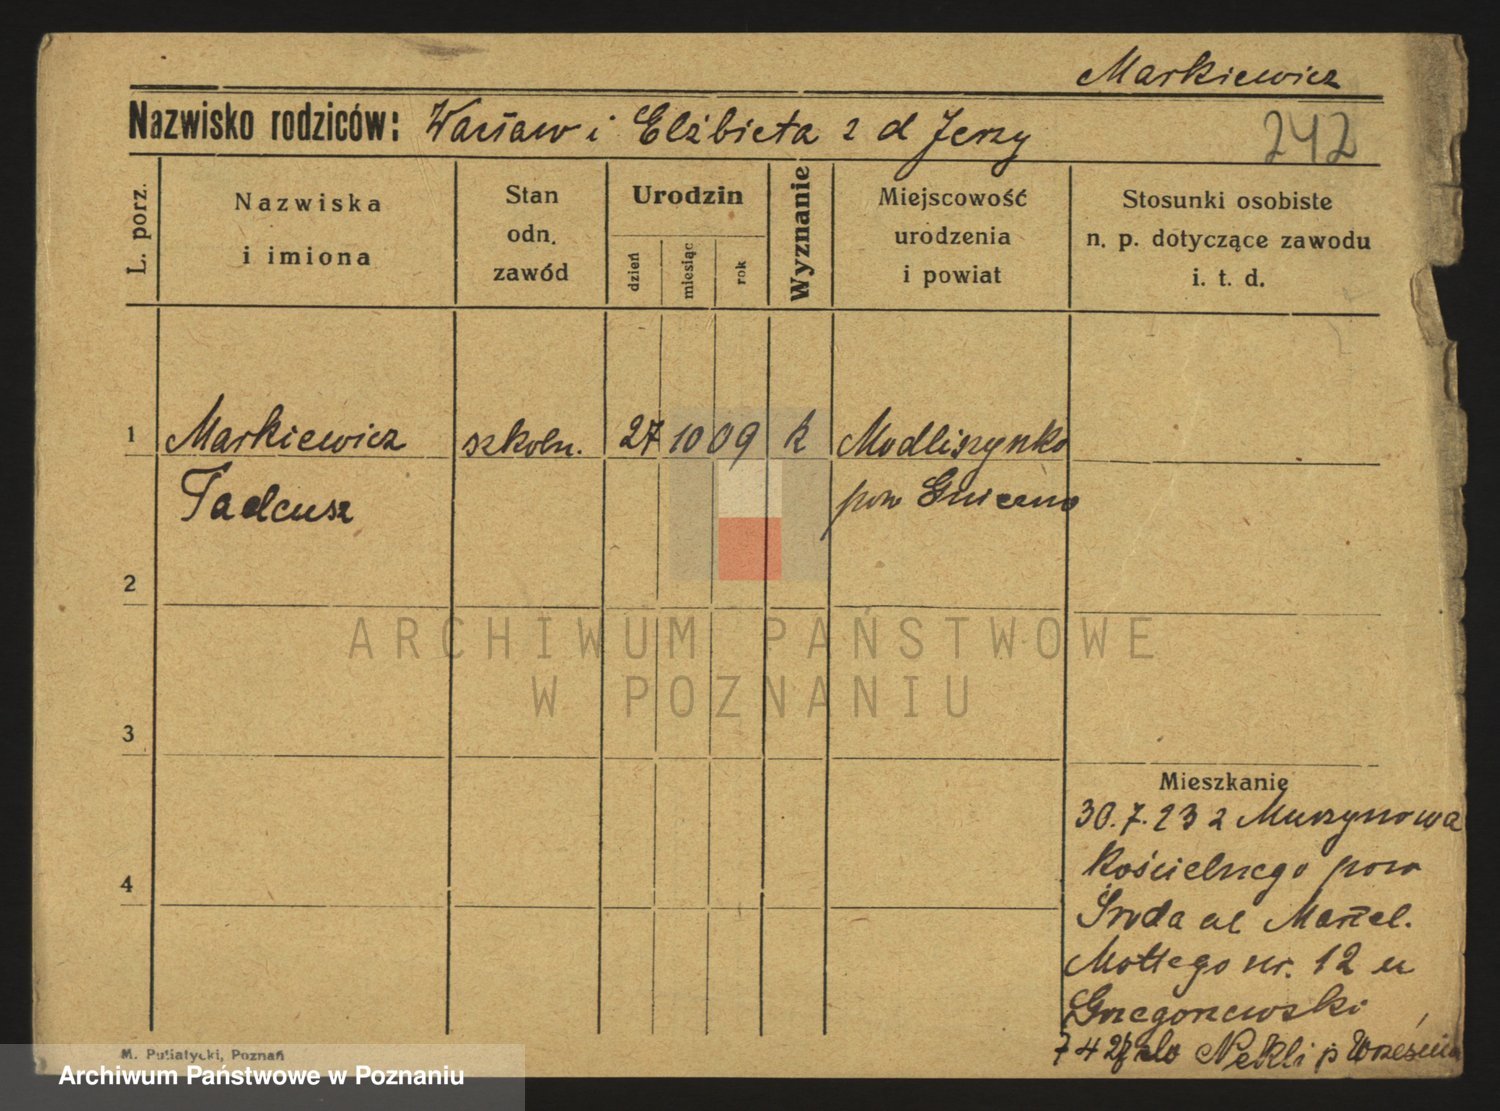 Markiewicz
Nazwisko rodziców: Wacław i Elżbieta z d Jerzy
242
L. porz.
Nazwiska
i imiona
Stan
odn.
zawód
Urodzin
dzień
miesiąc
rok
Wyznanie
Miejscowość
urodzenia
i powiat
Stosunki osobiste
n. p. dotyczące zawodu
i. t. d.
1 Markiewicz szkoln. 27 10 09 k Modliszynko
Tadeusz pow Gniezno
2
ARCHIWUM PAŃSTWOWE
W POZNANIU
3
Mieszkanie
30.7.23 z Murzynowa
Kościelnego pow
4
Środa ul Marcel.
Mottego nr. 12 u
Grzegorzewski
7 4 do Nekli p Września
M. Putiatycki, Poznań
Archiwum Państwowe w Poznaniu